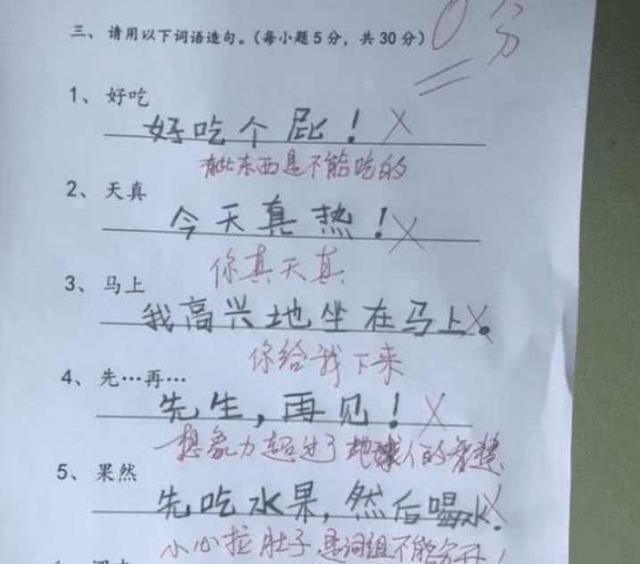 三、请用以下词语造句。(每小题5分,共30分) 0分
1、好吃
好吃个屁!
有些东西是不能吃的
2、天真
今天真热!
你真天真
3、马上
我高兴地坐在马上。
你给我下来
4、先…再…
先生,再见!
想象力超过了地球人的智慧
5、果然
先吃水果,然后喝水.
小心拉肚子,是词组不能分开!